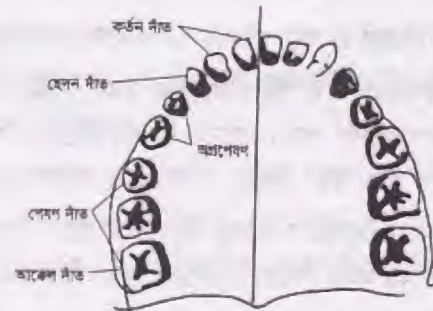 কর্তন দাঁত
ছেদন দাঁত
অগ্রপেষণ
পেষণ দাঁত
আক্কেল দাঁত